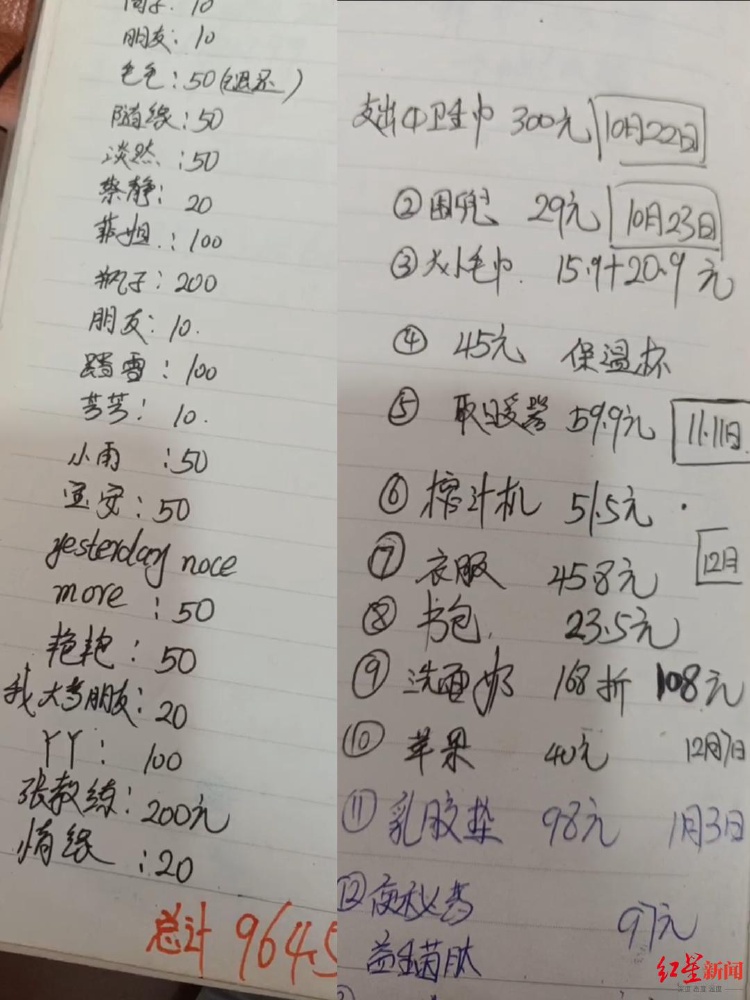 朋友：10
毛毛：50（已退还）
随缘：50
淡然：50
蔡静：20
菲姐：100
瓶子：200
朋友：10.
踏雪：100
芳芳：10.
小雨：50
宜安：50
yesterday noce
more：50
艳艳：50
我大考朋友：20
丫丫：100
张教练：200元
情缘：20
总计 964.5
支出①卫生巾 300元 10月22日
②围兜 29元 10月23日
③大小毛巾. 15.9+20.9元
④ 45元 保温杯
⑤ 取暖器 59.9元 11.11日
⑥ 榨汁机 51.5元.
⑦ 衣服 458元 12月
⑧ 书包 23.5元
⑨ 洗面奶 168折 108元
⑩ 苹果 40元 12月7日
⑪ 乳胶垫 98元 1月3日
⑫ 97元
益生菌肽
红星新闻